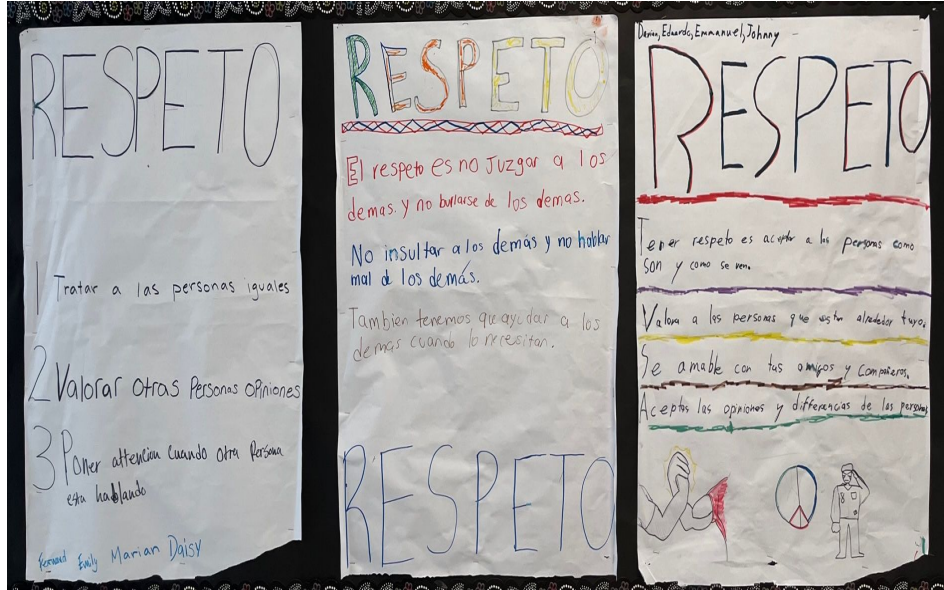 RESPETO
1 Tratar a las personas iguales
2 Valorar otras Personas opiniones
3 Poner attencion cuando otra Persona
esta hablando
Fernand Emily Marian Daisy
RESPETO
El respeto es no Juzgar a los
demas. y no burlarse de los demas.
No insultar a los demás y no hablar
mal de los demás.
Tambien tenemos que ayudar a los
demás cuando lo necesitan.
RESPETO
Eduardo, Emmanuel, Johnny
RESPETO
Tener respeto es aceptar a las personas como
son y como se ven.
Valora a las personas que estan alrededor tuyo.
Se amable con tus amigos y compañeros.
Aceptas las opiniones y differencias de las personas